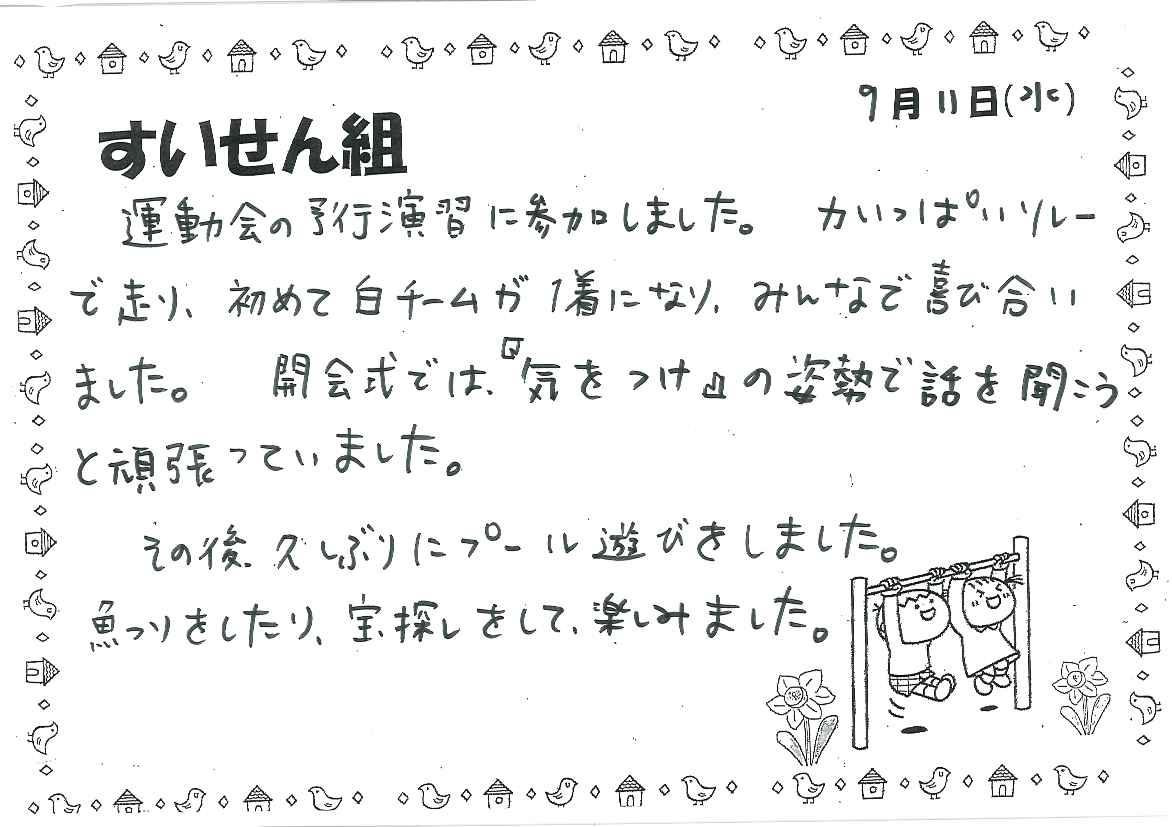 9月11日(水)
すいせん組
運動会の予行演習に参加しました。 力いっぱいリレー
で走り、初めて白チームが1着になり、みんなで喜び合い
ました。 開会式では、『気をつけ』の姿勢で話を聞こう
と頑張っていました。
その後、久しぶりにプール遊びをしました。
魚つりをしたり、宝探しをして、楽しみました。